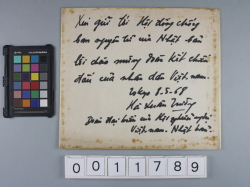 Xin gửi tới Hội đồng chống
bom nguyên tử của Nhật bản
lời chào mừng đoàn kết chiến
đấu của nhân dân Việt-nam.
Tokyo 8-5-68
Hà Xuân Trường
Đoàn đại biểu của Hội nghiên
Việt-nam. Nhật bản.
0011789